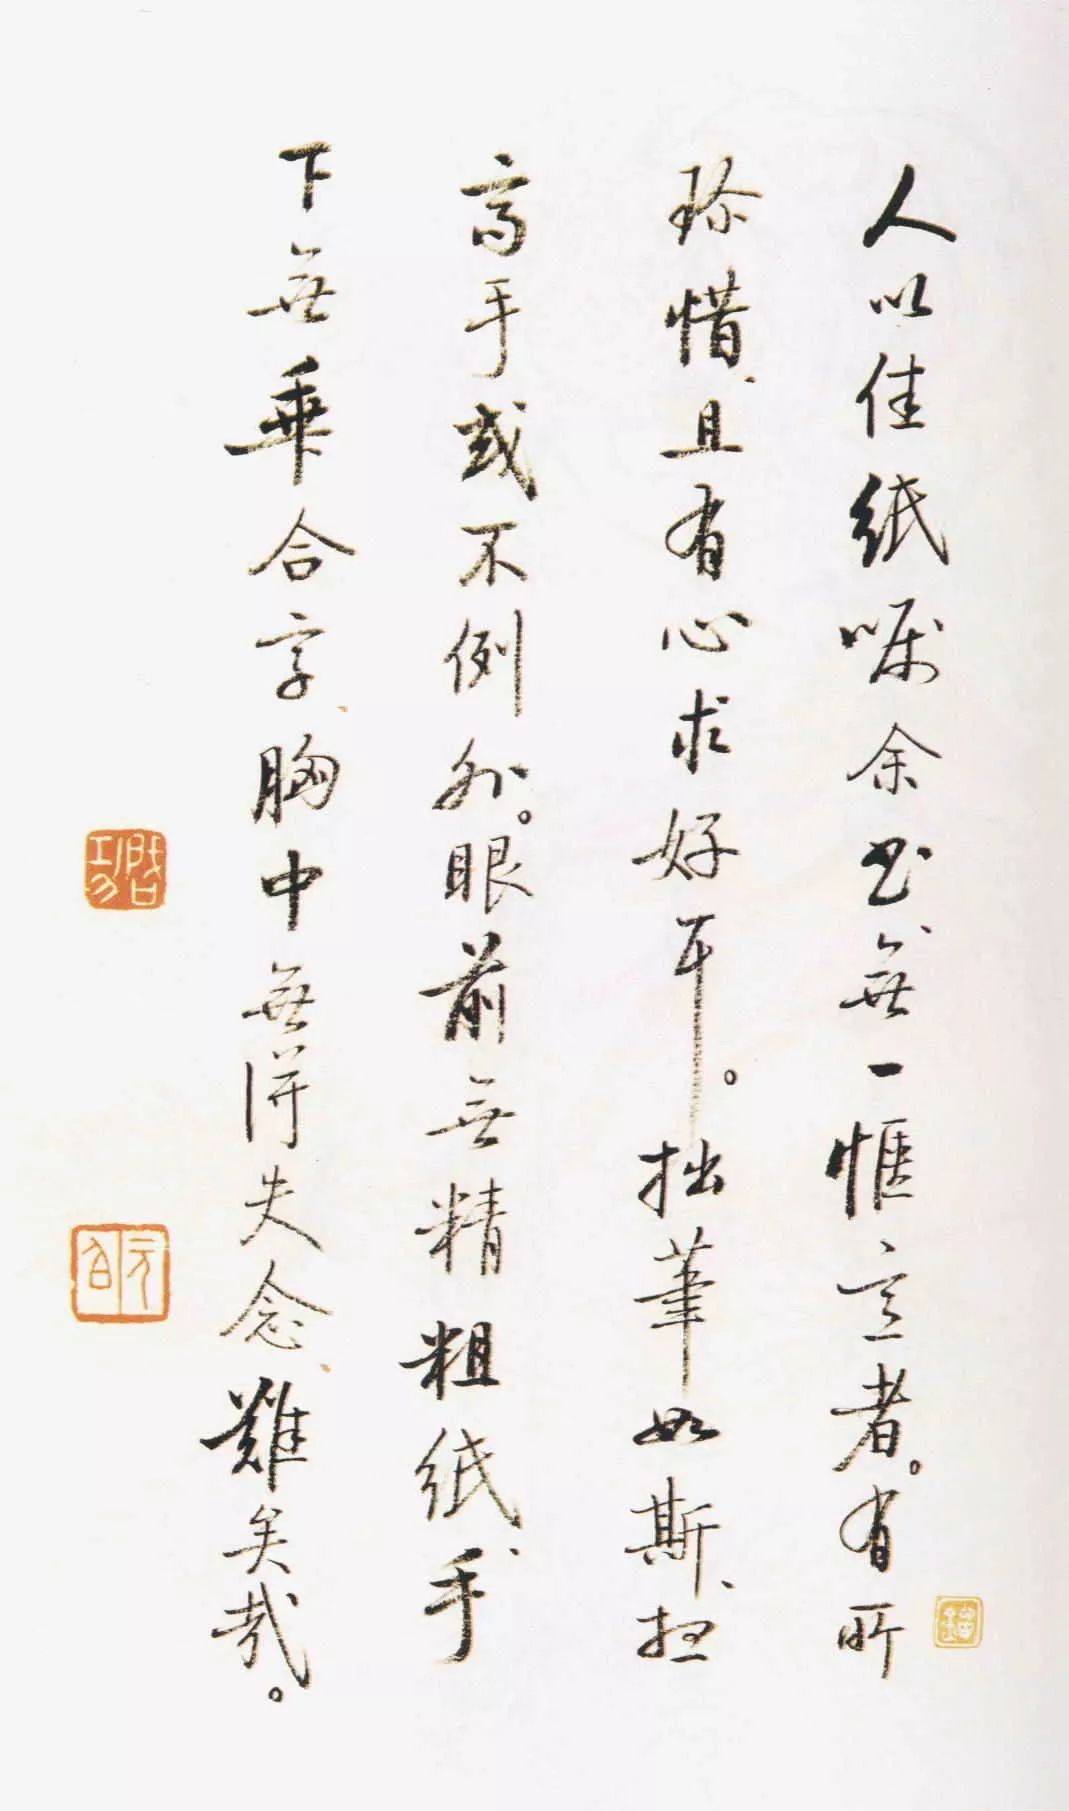 人以佳紙嘱余书無一惬意者。有所
珍惜、且有心求好耳。拙筆如斯、想
高手或不例外。眼前無精粗紙、手
下無乖合字、胸中無得失念、難矣哉。
啟功
元白